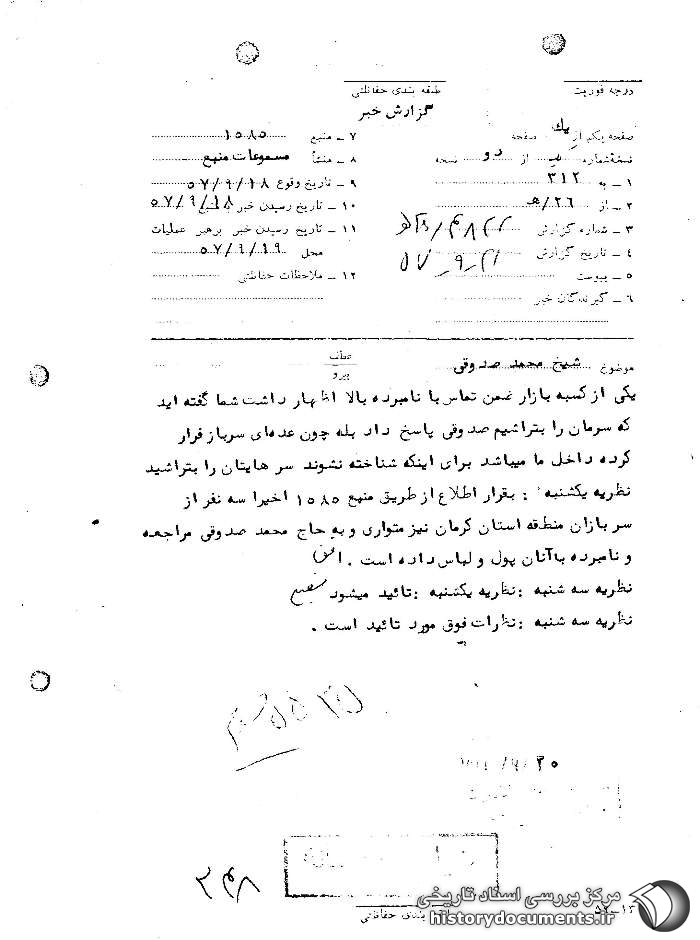 درجه فوریت
طبقه بندی حفاظتی
گزارش خبر
صفحه یکم از یك صفحه
نسخه شماره از دو نسخه
۱ ـ به ۳۱۲
۲ ـ از ۲۶/هـ
۳ ـ شماره گزارش
۴ ـ تاریخ گزارش
۵ ـ پیوست
۶ ـ گیرندگان خبر
۷ ـ منبع ۱۵۸۵
۸ ـ منشأ مسموعات منبع
۹ ـ تاریخ وقوع ۵۷/۹/۱۸
۱۰ ـ تاریخ رسیدن خبر به منبع ۵۷/۹/۱۸
۱۱ ـ تاریخ رسیدن خبر برهبر عملیات
محل ۵۷/۹/۱۹
۱۲ ـ ملاحظات حفاظتی
موضوع شیخ محمد صدوقی
عطف
پیرو
یکی از کسبه بازار ضمن تماس با نامبرده بالا اظهار داشت شما گفته اید
که سرمان را بتراشیم صدوقی پاسخ داد بله چون عده‌ای سرباز فرار
کرده داخل ما میباشد برای اینکه شناخته نشوند سر هایتان را بتراشید
نظریه یکشنبه : بقرار اطلاع از طریق منبع ۱۵۸۵ اخیرا سه نفر از
سربازان منطقه استان کرمان نیز متواری و به حاج محمد صدوقی مراجعه
و نامبرده بآنان پول و لباس داده است .
نظریه سه شنبه : نظریه یکشنبه : تائید میشود
نظریه سه شنبه : نظرات فوق مورد تائید است .
۳۴۸
بندی حفاظتی
مرکز بررسی اسناد تاریخی
historydocuments.ir